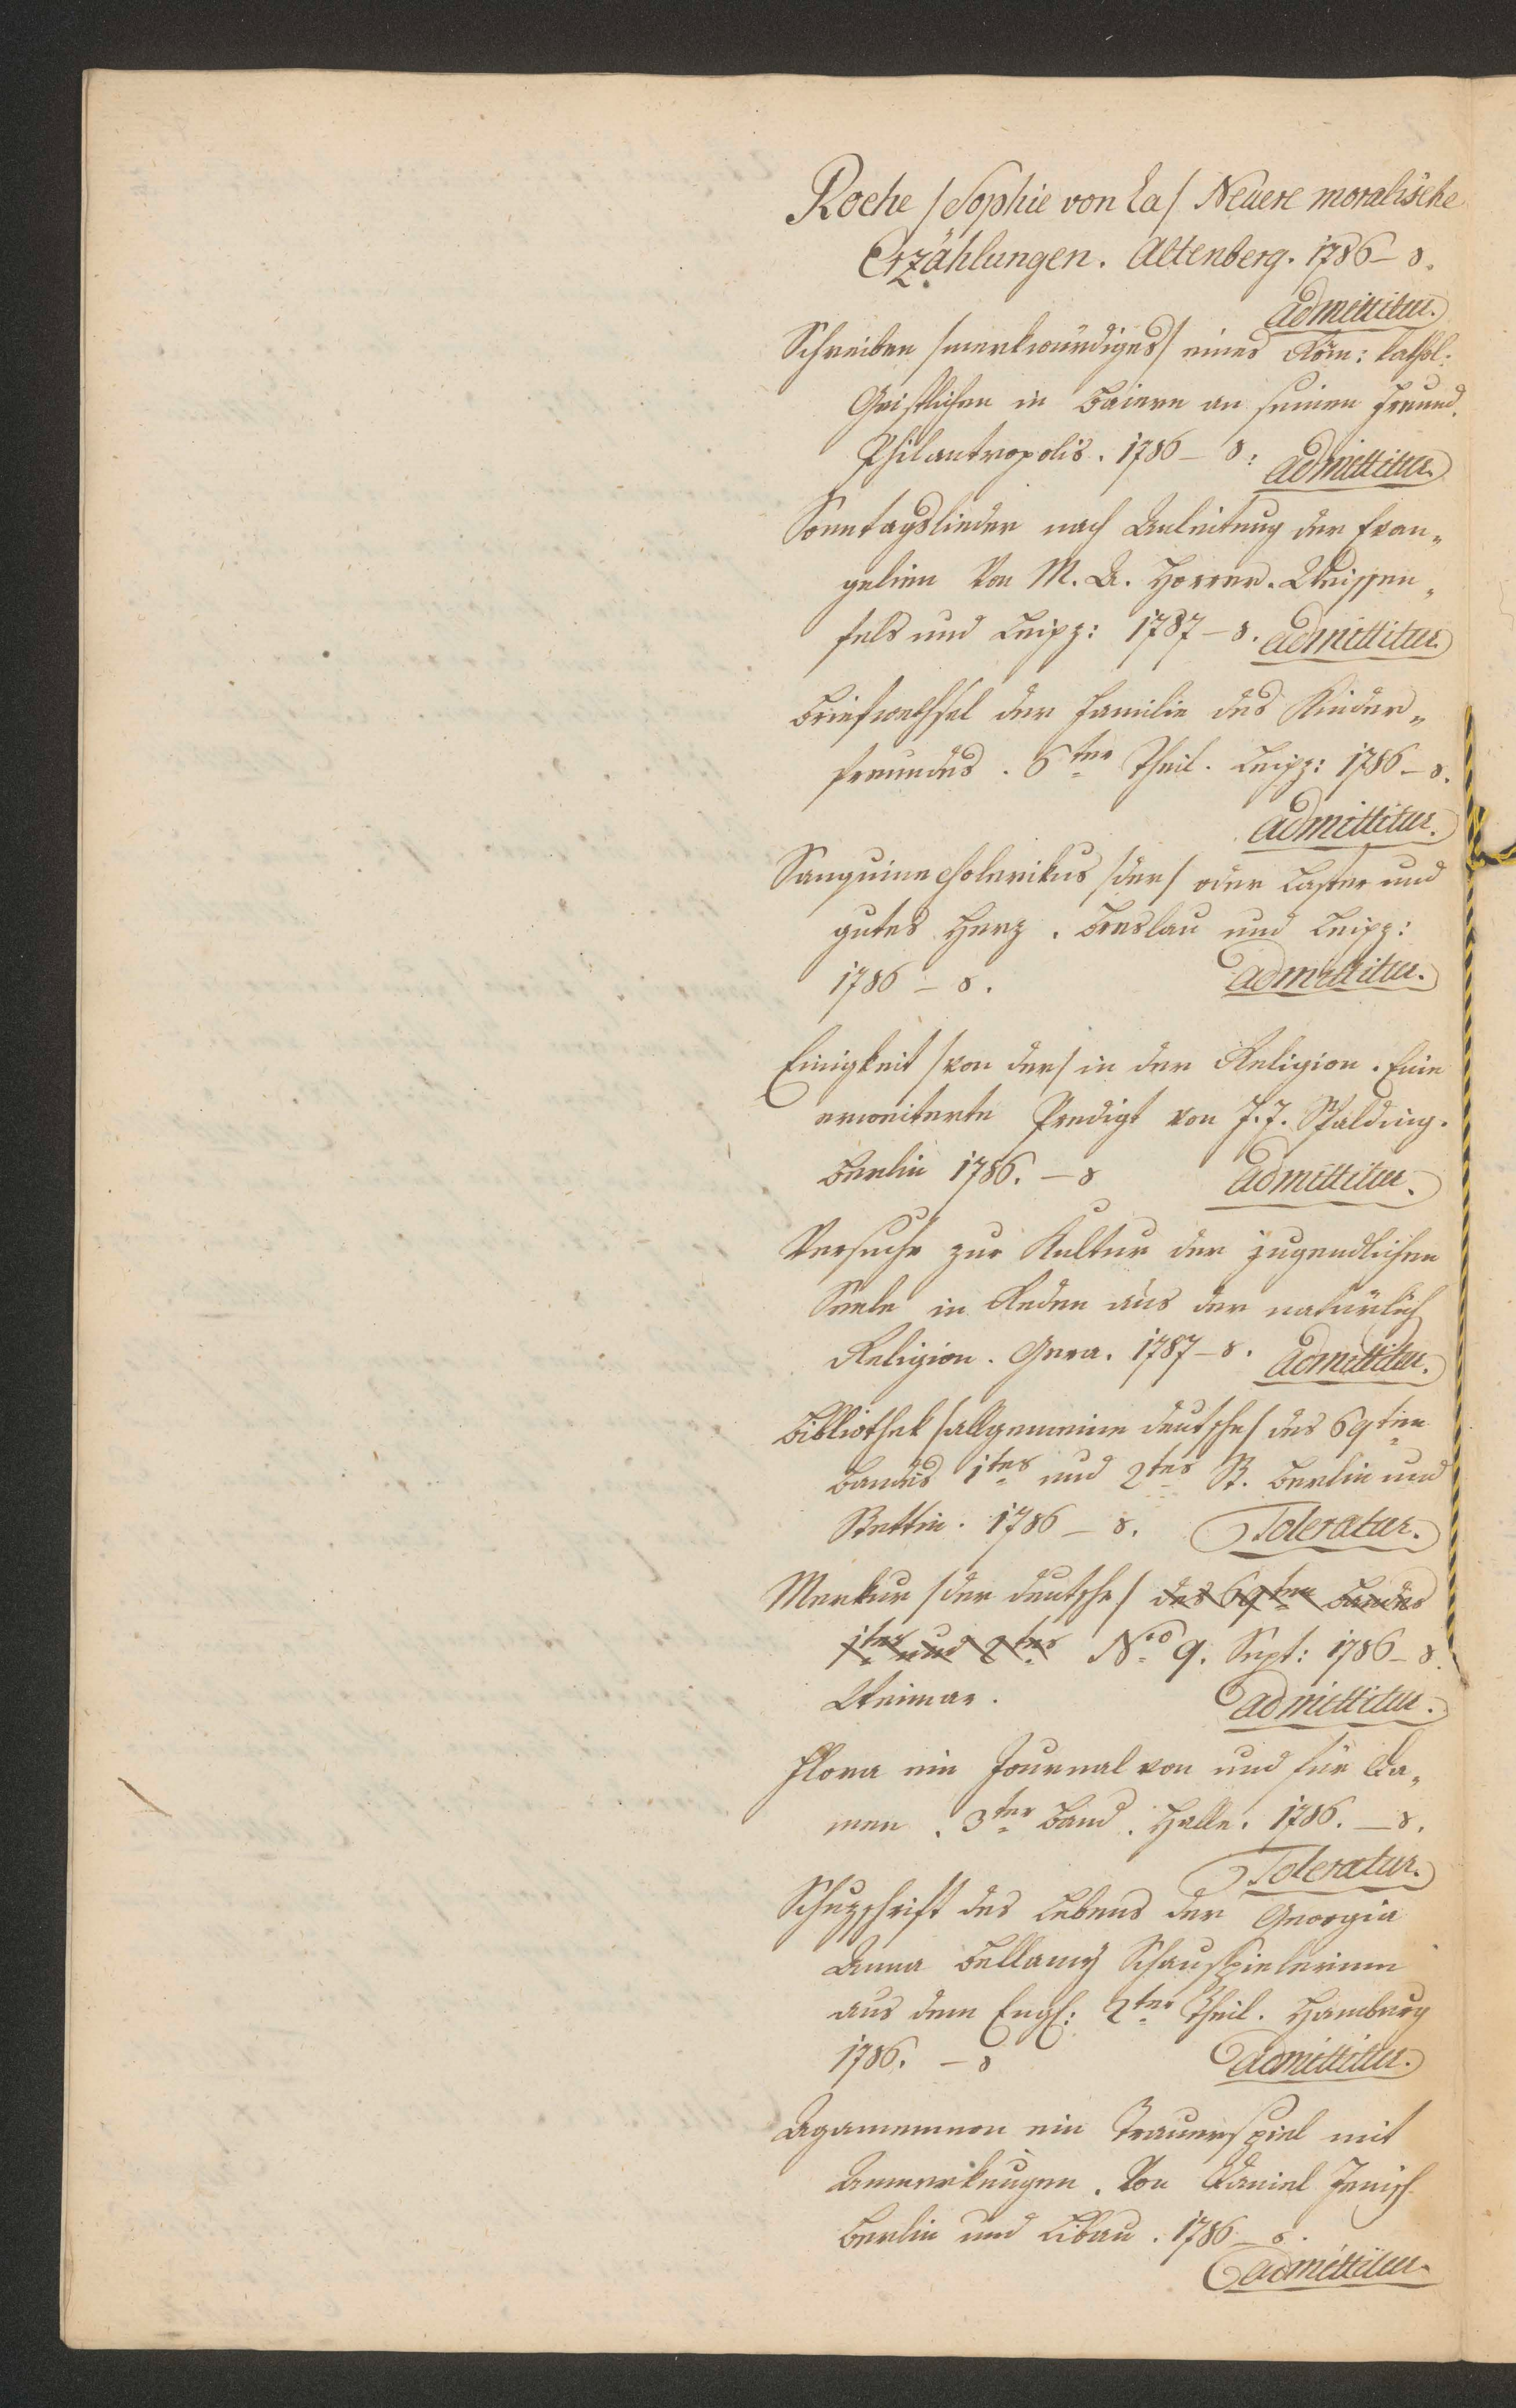 Roche /Sophie von La/ Neuere moralische
Erzählungen. Altenberg. 1786 – 8.
admittitur.
Schreiben /merkwürdiges/ eines Röm: kathol:
Geistlichen in Baiern an seinen Freund.
Philantropolis. 1786 – 8: admittitur.
Sonntagslieder nach Anleitung der Evan„
gelien Von M. A. Horrer. Weissen„
fels und Leipz: 1787 – 8. admittitur
Briefwechsel der Familie des Kinder„
freundes. 6ter Theil. Leipz: 1786 – 8.
admittitur.
Sanguine cholerikus /der/ oder Laster und
gutes Herz. Breslau und Leipz:
1786 – 8. admittitur.
Einigkeit /von der/ in der Religion. Eine
erweiterte Predigt von J. J. Spalding.
Berlin 1786. – 8 admittitur.
Versuche zur Kultur der jugendlichen
Seele in Reden aus der natürlich
Religion. Gera. 1787 – 8. admittitur.
Bibliothek /allgemeine deutsche/ des 69ten
Bandes 1tes und 2tes St. Berlin und
Stettin. 1786 – 8. Toleratur.
Merkur /der deutsche/ des 69ten Bandes
1tes und 2tes Nro 9. Sept: 1786 – 8.
Weimar. admittitur.
Flora ein Journal von und für Da„
men. 3ter Band. Halle. 1786. – 8.
Toleratur.
Schuzschrift des Lebens der Georgia
Anna Bellamy Schauspielerinn
aus dem Engl: 2ter Theil. Hamburg
1786. – 8 admittitur.
Agamemnon ein Trauerspiel mit
Anmerkungen. Von Daniel Jenisch
Berlin und Libau. 1786 – 8.
admittitur.